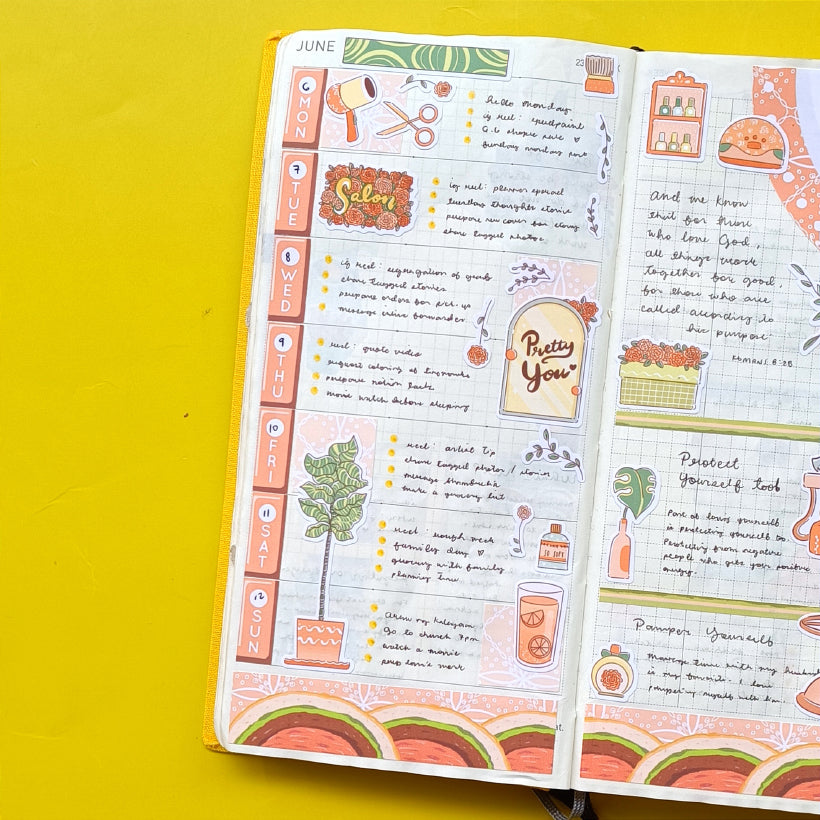 JUNE
23
6 MON
hello monday
ig reel: speedpaint
sunday monday post
7 TUE
Salon
ig reel: planner spread
thoughts stories
prepare new cover for
share tagged photos
8 WED
ig reel: segregation of goods
share tagged stories
prepare orders for pick-up
message forwarder
9 THU
reel: quote video
request coloring of
prepare notion
movie watch before sleeping
Pretty You
10 FRI
reel: artist tip
share tagged photos / stories
message
make a grocery list
11 SAT
reel: rough week
family day
grocery with family
planning time
SO SOFT
12 SUN
draw my
go to church 7pm
watch a movie
work
And we know
that for those
who love God,
all things work
together for good,
for those who are
called according to
his purpose
ROMANS 8:28
Protect
yourself too!
Part of loving yourself
is protecting yourself too.
Protecting from negative
people who gets your positive
energy.
Pamper Yourself
Massage time with my husband
is my favorite. I love
pampering myself with him.